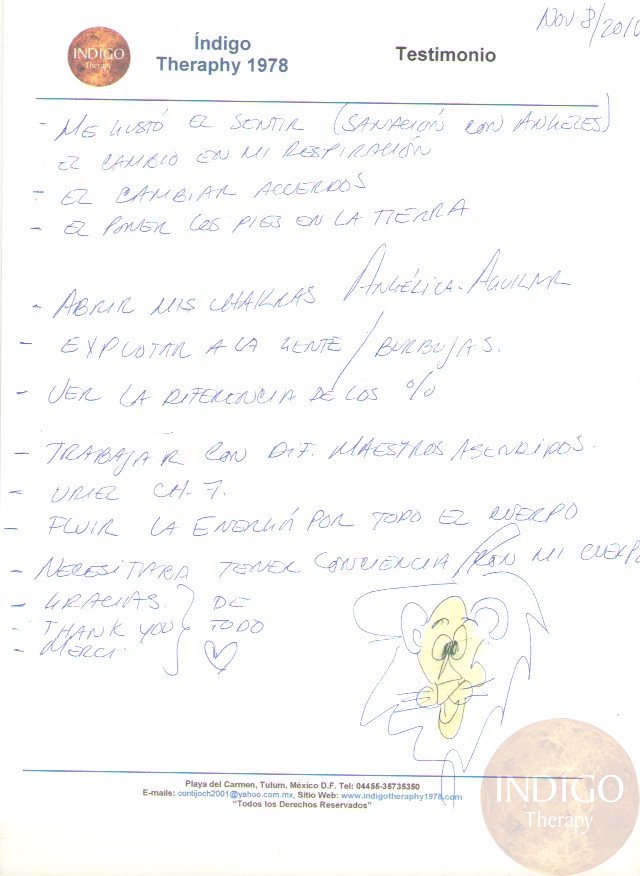 Nov 8/201
INDIGO
Therapy
Índigo
Theraphy 1978
Testimonio
- ME GUSTÓ EL SENTIR (SANACIÓN CON ANGELES)
EL CAMBIO EN MI RESPIRACIÓN
- EL CAMBIAR ACUERDOS
- EL PONER LOS PIES EN LA TIERRA
ANGÉLICA. AGUILAR
- ABRIR MIS CHAKRAS
- EXPLOTAR A LA GENTE / BURBUJAS.
- VER LA DIFERENCIA DE LOS %
- TRABAJAR CON DIF. MAESTROS ASENDIDOS.
- URIEL CH. 7.
- FLUIR LA ENERGÍA POR TODO EL CUERPO
- NECESITABA TENER CONCIENCIA / CON MI CUERPO
- GRACIAS. } DE
- THANK YOU } TODO
- MERCI. } ♡
Playa del Carmen, Tulum, México D.F. Tel: 04455-35735350
E-mails: contijoch2001@yahoo.com.mx, Sitio Web: www.indigotheraphy1978.com
"Todos los Derechos Reservados"
INDIGO
Therapy